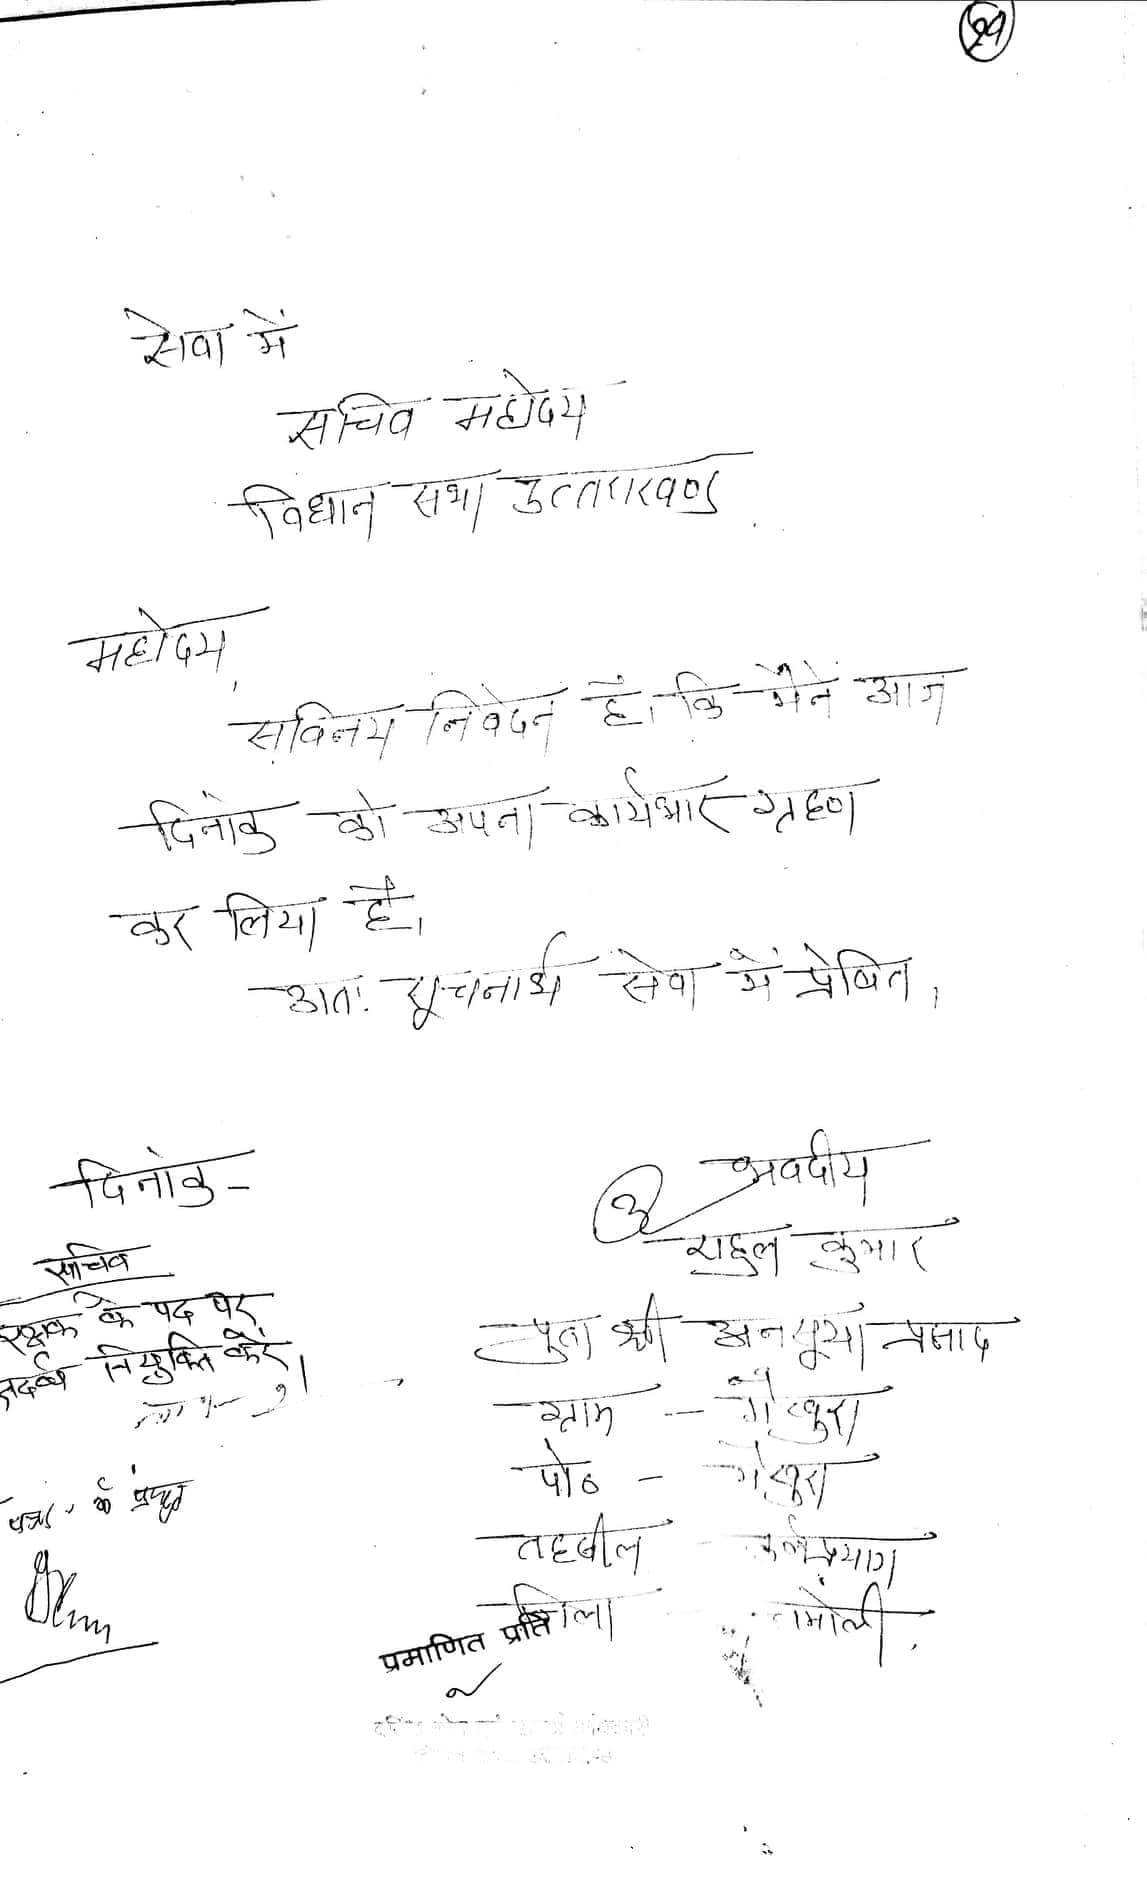 29
सेवा में
सचिव महोदय
विधान सभा उत्तराखण्ड
महोदय,
सविनय निवेदन है। कि मैने आज
दिनांक को अपना कार्यभार ग्रहण
कर लिया है।
अतः सूचनार्थ सेवा में प्रेषित।
दिनांक - भवदीय
राहुल कुमार
सचिव
रक्षक के पद पर
तदर्थ नियुक्ति करें।
पुत्र श्री अनसूया प्रसाद
ग्राम - गैरपुरा
पो० - गैरपुरा
तहसील - कर्णप्रयाग
जिला चमोली
प्रमाणित प्रति